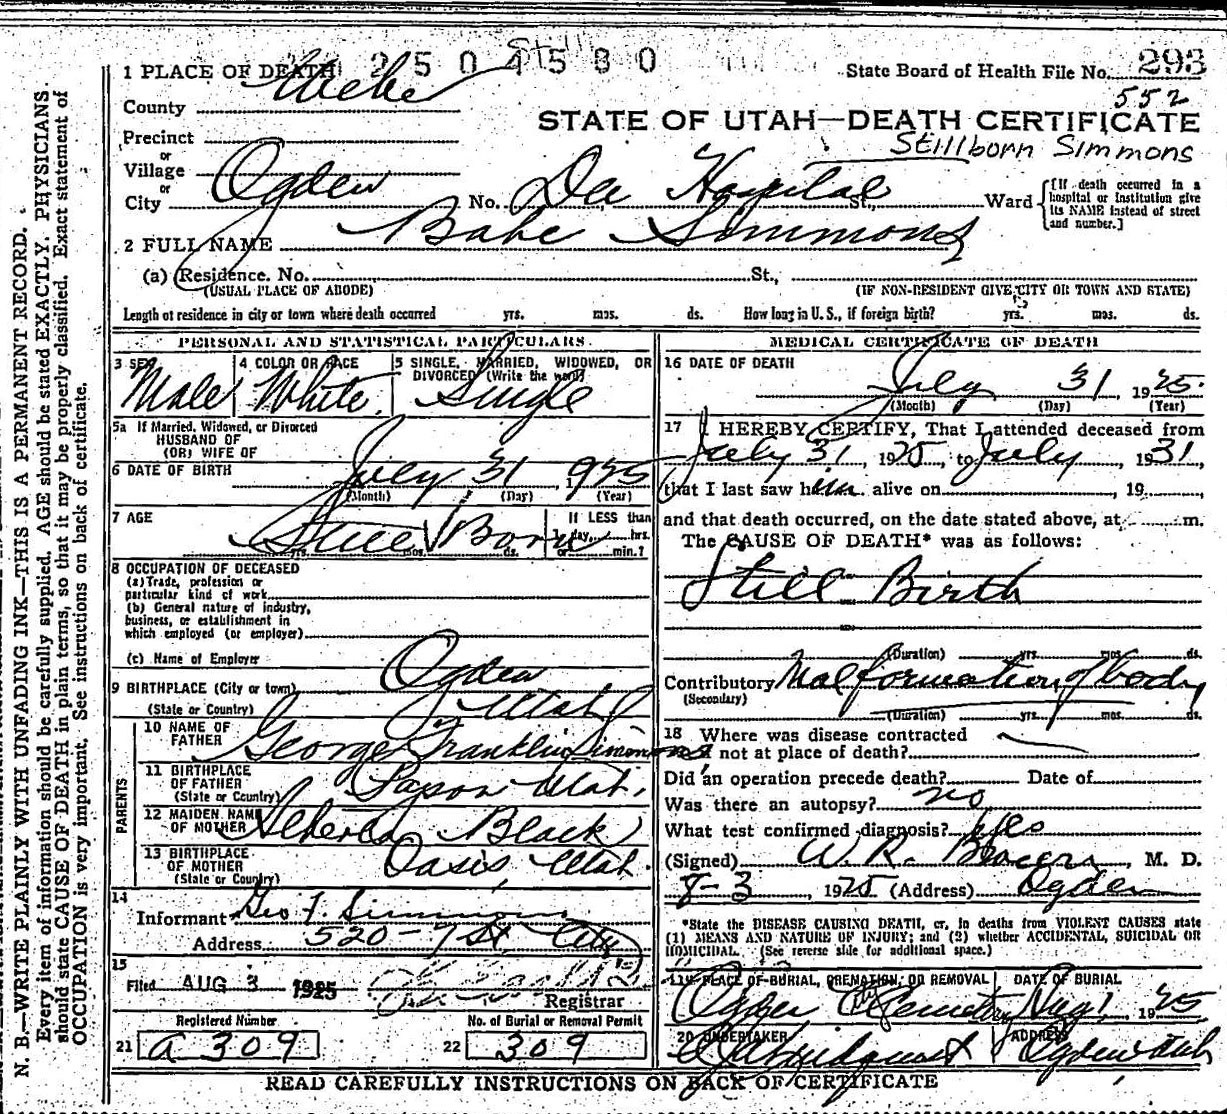 2504580 Still
State Board of Health File No. 293
552
STATE OF UTAH—DEATH CERTIFICATE
Stillborn Simmons
1 PLACE OF DEATH
County Weber
Precinct
or
Village
or
City Ogden No. Dee Hospital St., Ward
{If death occurred in a hospital or institution give its NAME instead of street and number.]
2 FULL NAME Babe Simmons
(a) Residence. No. St.,
(USUAL PLACE OF ABODE) (IF NON-RESIDENT GIVE CITY OR TOWN AND STATE)
Length of residence in city or town where death occurred yrs. mos. ds. How long in U. S., if foreign birth? yrs. mos. ds.
PERSONAL AND STATISTICAL PARTICULARS.
3 SEX Male
4 COLOR OR RACE White
5 SINGLE, MARRIED, WIDOWED, OR DIVORCED (Write the word) Single
5a If Married, Widowed, or Divorced
HUSBAND OF
(OR) WIFE OF
6 DATE OF BIRTH July 31 1925
(Month) (Day) (Year)
7 AGE Still Born
yrs. mos. ds.
If LESS than
1 day, hrs.
or min.?
8 OCCUPATION OF DECEASED
(a) Trade, profession or
particular kind of work
(b) General nature of industry,
business, or establishment in
which employed (or employer)
(c) Name of Employer
9 BIRTHPLACE (City or town) Ogden
(State or Country) Utah
PARENTS
10 NAME OF FATHER George Franklin Simmons
11 BIRTHPLACE OF FATHER Payson Utah.
(State or Country)
12 MAIDEN NAME OF MOTHER Black
13 BIRTHPLACE OF MOTHER Oasis, Utah
(State or Country)
14
Informant Geo F. Simmons
Address 520-7 St. City
15
Filed AUG 3 1925
Registrar
Registered Number
21 a 309
No. of Burial or Removal Permit
22 309
MEDICAL CERTIFICATE OF DEATH
16 DATE OF DEATH
July 31, 1925.
(Month) (Day) (Year)
17 I HEREBY CERTIFY, That I attended deceased from
July 31, 1925, to July, 1931,
that I last saw him alive on , 19 ,
and that death occurred, on the date stated above, at m.
The CAUSE OF DEATH* was as follows:
Still Birth
(Duration) yrs. mos. ds.
Contributory Malformation of body
(Secondary)
(Duration) yrs. mos. ds.
18 Where was disease contracted
if not at place of death?
Did an operation precede death? Date of
Was there an autopsy? no
What test confirmed diagnosis? eyes
(Signed) W. R. , M. D.
8-3 1925 (Address) Ogden
*State the DISEASE CAUSING DEATH, or, in deaths from VIOLENT CAUSES state
(1) MEANS AND NATURE OF INJURY; and (2) whether ACCIDENTAL, SUICIDAL OR
HOMICIDAL. (See reverse side for additional space.)
19 PLACE OF BURIAL, CREMATION, OR REMOVAL Ogden City Cemetery
DATE OF BURIAL Aug 1, 1925
20 UNDERTAKER
ADDRESS Ogden Utah
READ CAREFULLY INSTRUCTIONS ON BACK OF CERTIFICATE
N. B.—WRITE PLAINLY WITH UNFADING INK—THIS IS A PERMANENT RECORD.
Every item of information should be carefully supplied. AGE should be stated EXACTLY. PHYSICIANS
should state CAUSE OF DEATH in plain terms, so that it may be properly classified. Exact statement of
OCCUPATION is very important. See instructions on back of certificate.